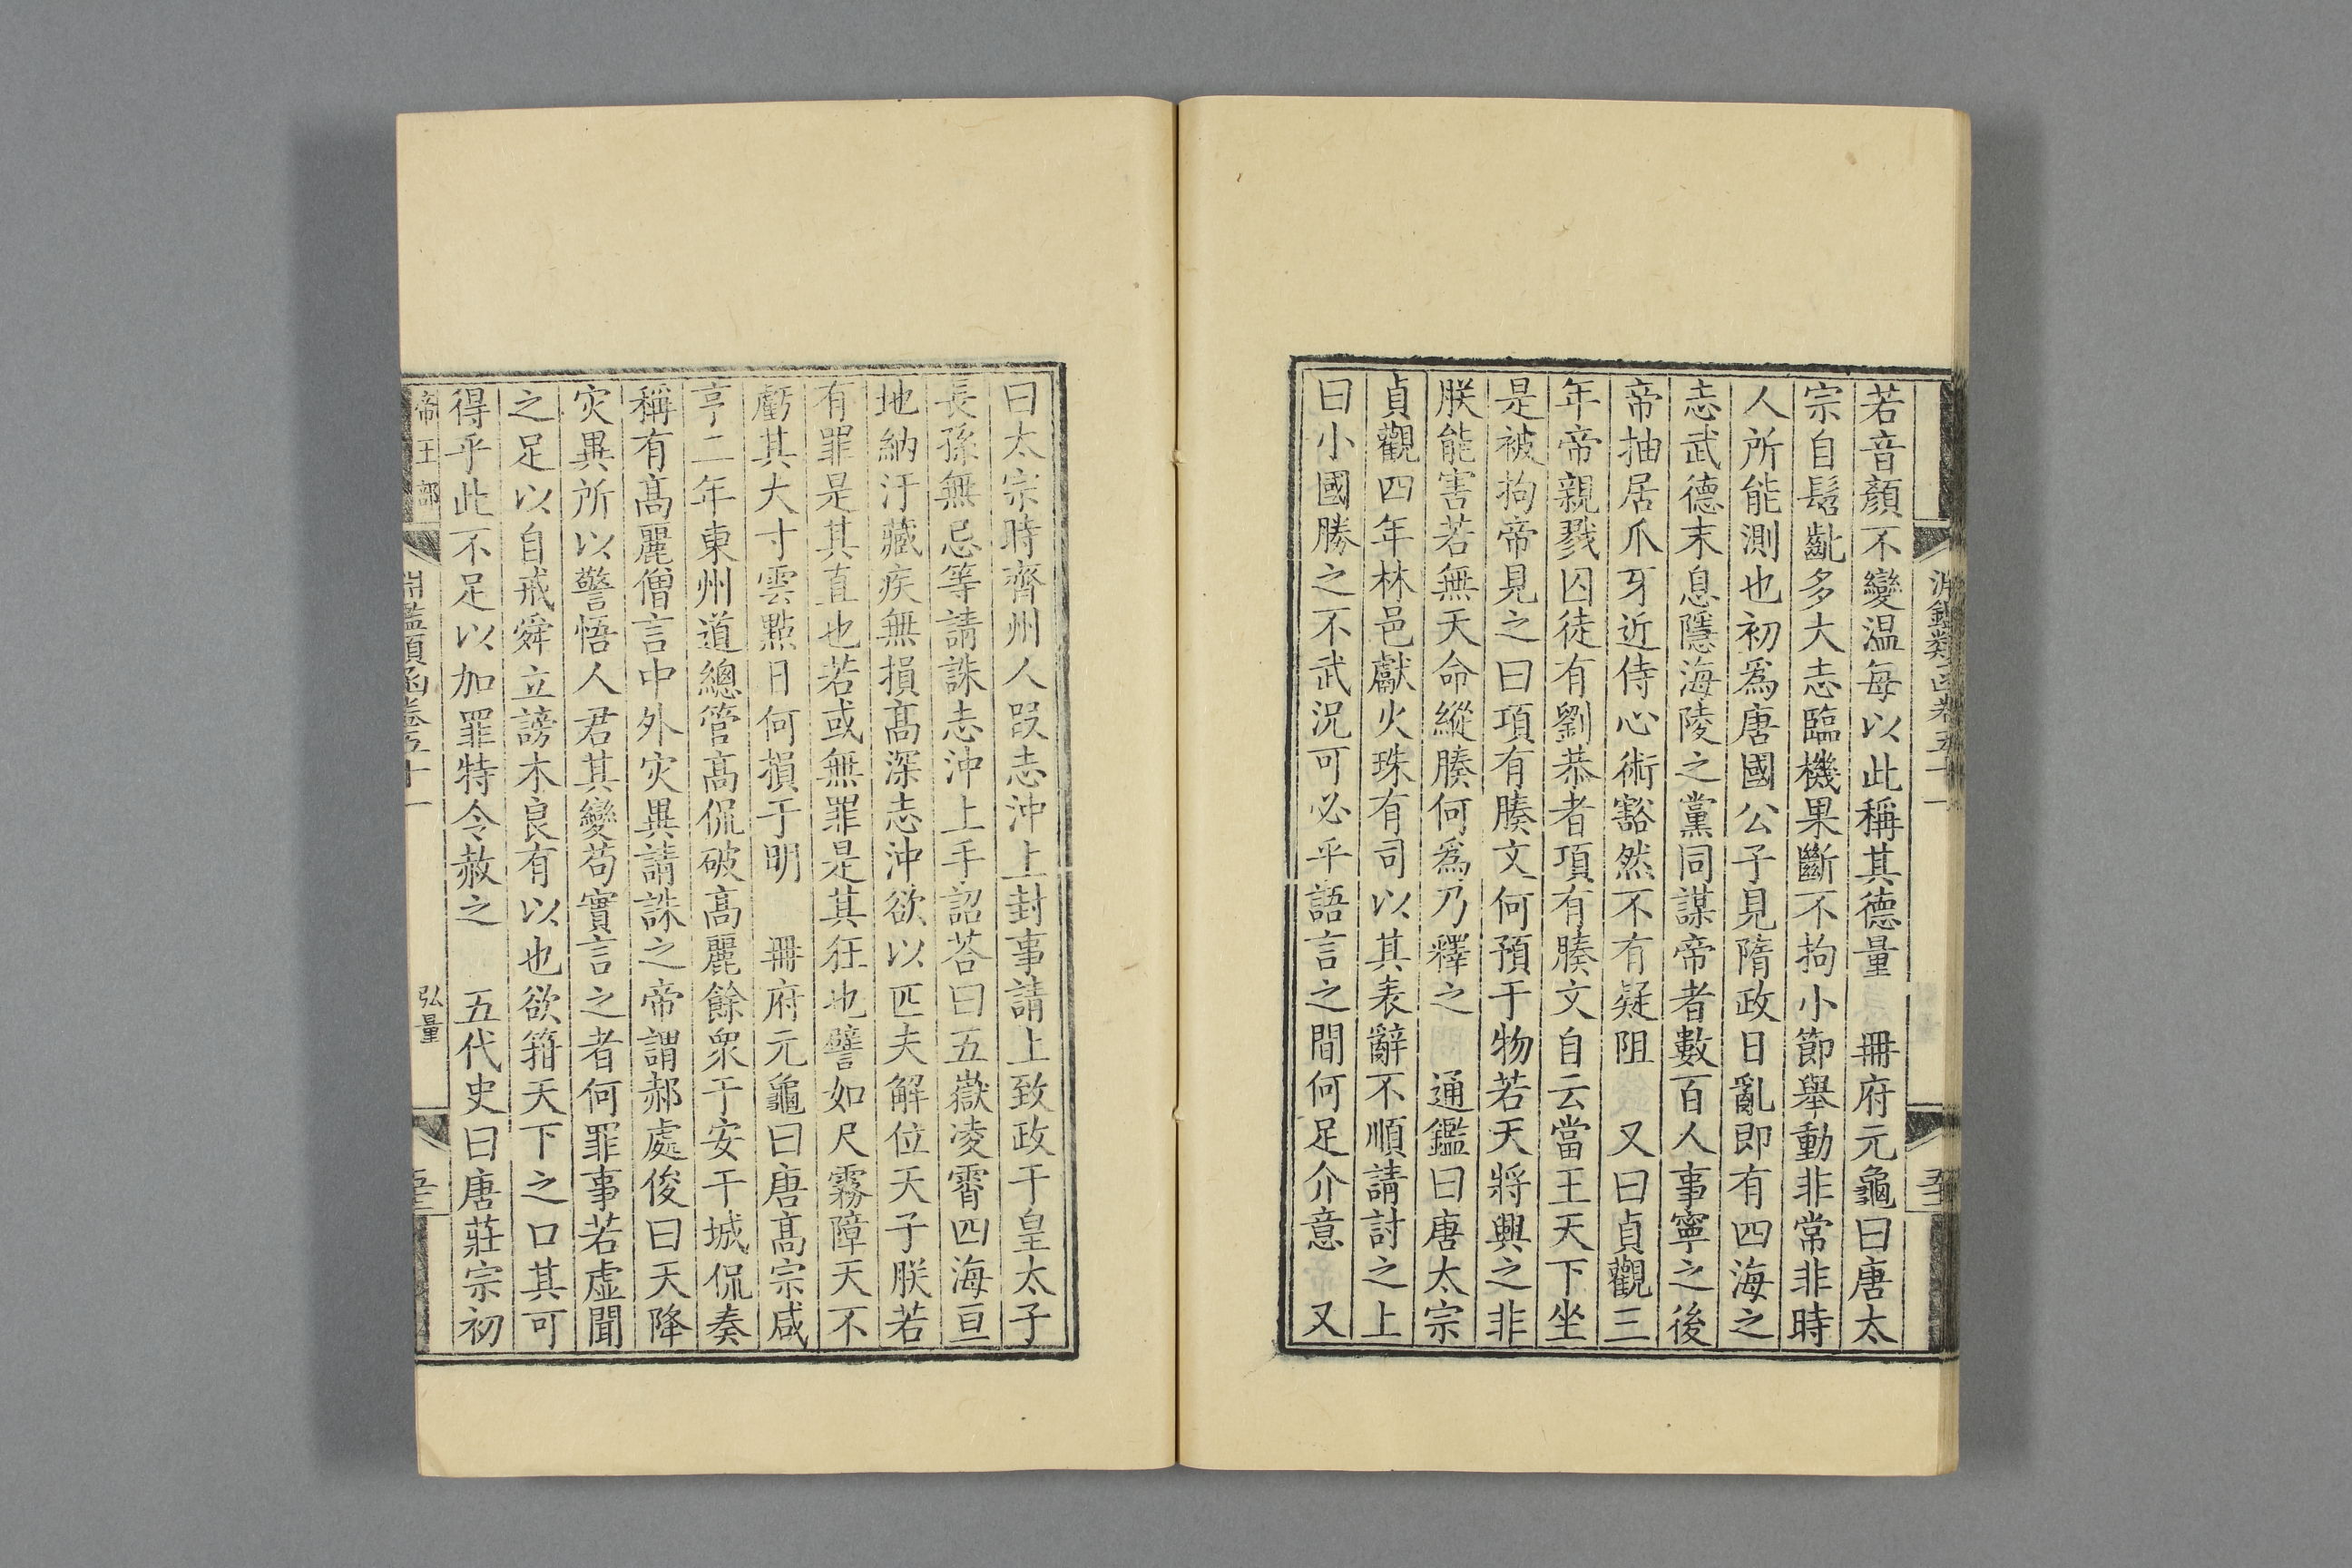 若音顏不變溫每以此稱其德量　冊府元龜曰唐太
宗自髫齔多大志臨機果斷不拘小節舉動非常非時
人所能測也初爲唐國公子見隋政日亂即有四海之
志武德末息隱海陵之黨同謀帝者數百人事寧之後
帝抽居爪牙近侍心術豁然不有疑阻　又曰貞觀三
年帝親戮囚徒有劉恭者項有勝文自云當王天下坐
是被拘帝見之曰項有勝文何預于物若天將興之非
朕能害若無天命縱勝何爲乃釋之　通鑑曰唐太宗
貞觀四年林邑獻火珠有司以其表辭不順請討之上
曰小國勝之不武況可必乎語言之間何足介意　又
曰太宗時齊州人段志沖上封事請上致政于皇太子
長孫無忌等請誅志沖上手詔荅曰五嶽凌霄四海亘
地納汙藏疾無損高深志沖欲以匹夫解位天子朕若
有罪是其直也若或無罪是其狂也譬如尺霧障天不
虧其大寸雲點日何損于明　冊府元龜曰唐高宗咸
亨二年東州道總管高侃破高麗餘衆于安干城侃奏
稱有高麗僧言中外灾異請誅之帝謂郝處俊曰天降
灾異所以警悟人君其變苟實言之者何罪事若虛聞
之足以自戒舜立謗木良有以也欲箝天下之口其可
得乎此不足以加罪特令赦之　五代史曰唐莊宗初
帝王部　淵鑑類函卷五十一　弘量